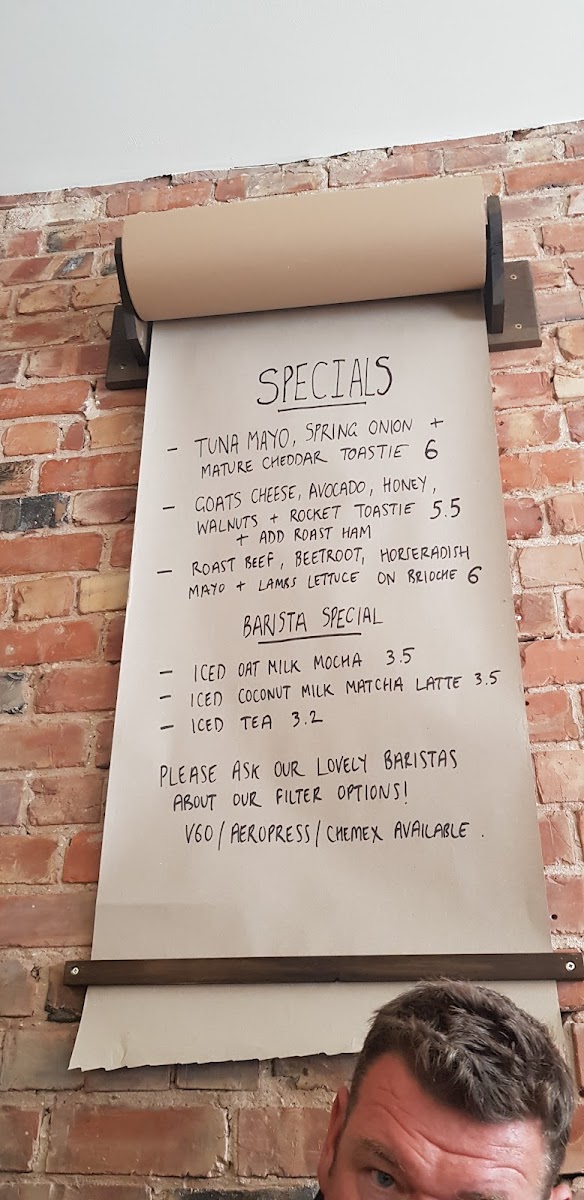 SPECIALS
- TUNA MAYO, SPRING ONION +
MATURE CHEDDAR TOASTIE 6
- GOATS CHEESE, AVOCADO, HONEY,
WALNUTS + ROCKET TOASTIE 5.5
+ ADD ROAST HAM
- ROAST BEEF, BEETROOT, HORSERADISH
MAYO + LAMBS LETTUCE ON BRIOCHE 6
BARISTA SPECIAL
- ICED OAT MILK MOCHA 3.5
- ICED COCONUT MILK MATCHA LATTE 3.5
- ICED TEA 3.2
PLEASE ASK OUR LOVELY BARISTAS
ABOUT OUR FILTER OPTIONS!
V60/AEROPRESS/CHEMEX AVAILABLE.